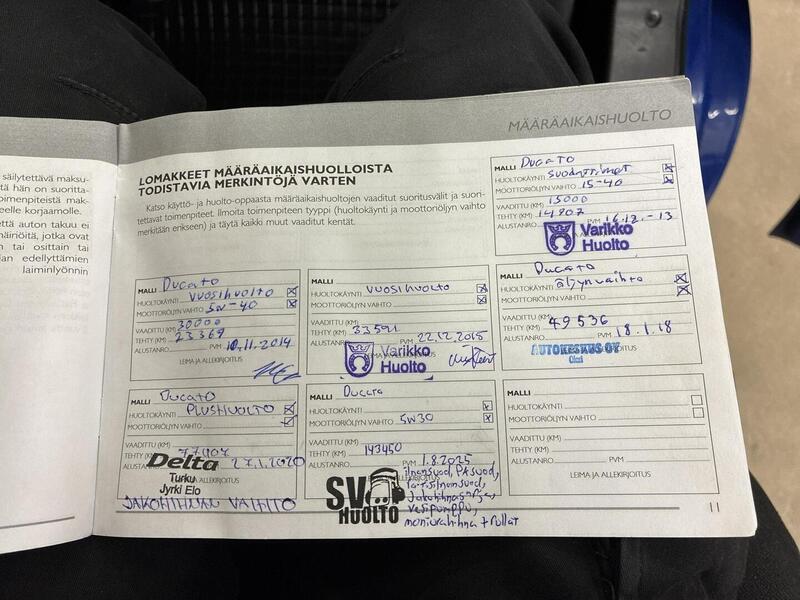 MÄÄRÄAIKAISHUOLTO
säilytettävä maksu-
tä hän on suoritta-
imenpiteistä mak-
eelle korjaamolle.
että auton takuu ei
näiriöitä, jotka ovat
n tai osittain tai
an edellyttämien
laiminlyönnin
LOMAKKEET MÄÄRÄAIKAISHUOLLOISTA
TODISTAVIA MERKINTÖJÄ VARTEN
Katso käyttö- ja huolto-oppaasta määräaikaishuoltojen vaaditut suoritusvälit ja suori-
tettavat toimenpiteet. Ilmoita toimenpiteen tyyppi (huoltokäynti ja moottoriöljyn vaihto
merkitään erikseen) ja täytä kaikki muut vaaditut kentät.
MALLI Ducato
HUOLTOKÄYNTI suodattimet
MOOTTORIÖLJYN VAIHTO 15-40
VAADITTU (KM) 15000
TEHTY (KM) 14807
ALUSTANRO PVM 16.12.-13
Varikko
Huolto
MALLI Ducato
HUOLTOKÄYNTI Vuosihuolto
MOOTTORIÖLJYN VAIHTO 5W-40
VAADITTU (KM) 30000
TEHTY (KM) 23369
ALUSTANRO PVM 10.11.2014
LEIMA JA ALLEKIRJOITUS
MALLI
HUOLTOKÄYNTI VUOSIHUOLTO
MOOTTORIÖLJYN VAIHTO
VAADITTU (KM)
TEHTY (KM) 33591
ALUSTANRO PVM 22.12.2015
LEIMA JA ALLEKIRJOITUS
Varikko
Huolto
MALLI Ducato
HUOLTOKÄYNTI öljynvaihto
MOOTTORIÖLJYN VAIHTO
VAADITTU (KM)
TEHTY (KM) 49536
ALUSTANRO PVM 18.1.18
AUTOKESKUS OY
MALLI Ducato
HUOLTOKÄYNTI PLUSHUOLTO
MOOTTORIÖLJYN VAIHTO
VAADITTU (KM)
TEHTY (KM) 77407
ALUSTANRO 27.1.2020
Delta
Turku
Jyrki Elo
JAKOHIHNAN VAIHTO
MALLI Ducato
HUOLTOKÄYNTI
MOOTTORIÖLJYN VAIHTO 5W30
VAADITTU (KM)
TEHTY (KM) 143450
ALUSTANRO PVM 1.8.2025
ilmansuod, PAsuod,
raitisilmansuod,
Jakohihnasarja,
vesipumppu,
moniurahihna + rullat
SV
HUOLTO
MALLI
HUOLTOKÄYNTI
MOOTTORIÖLJYN VAIHTO
VAADITTU (KM)
TEHTY (KM)
ALUSTANRO PVM
LEIMA JA ALLEKIRJOITUS
11